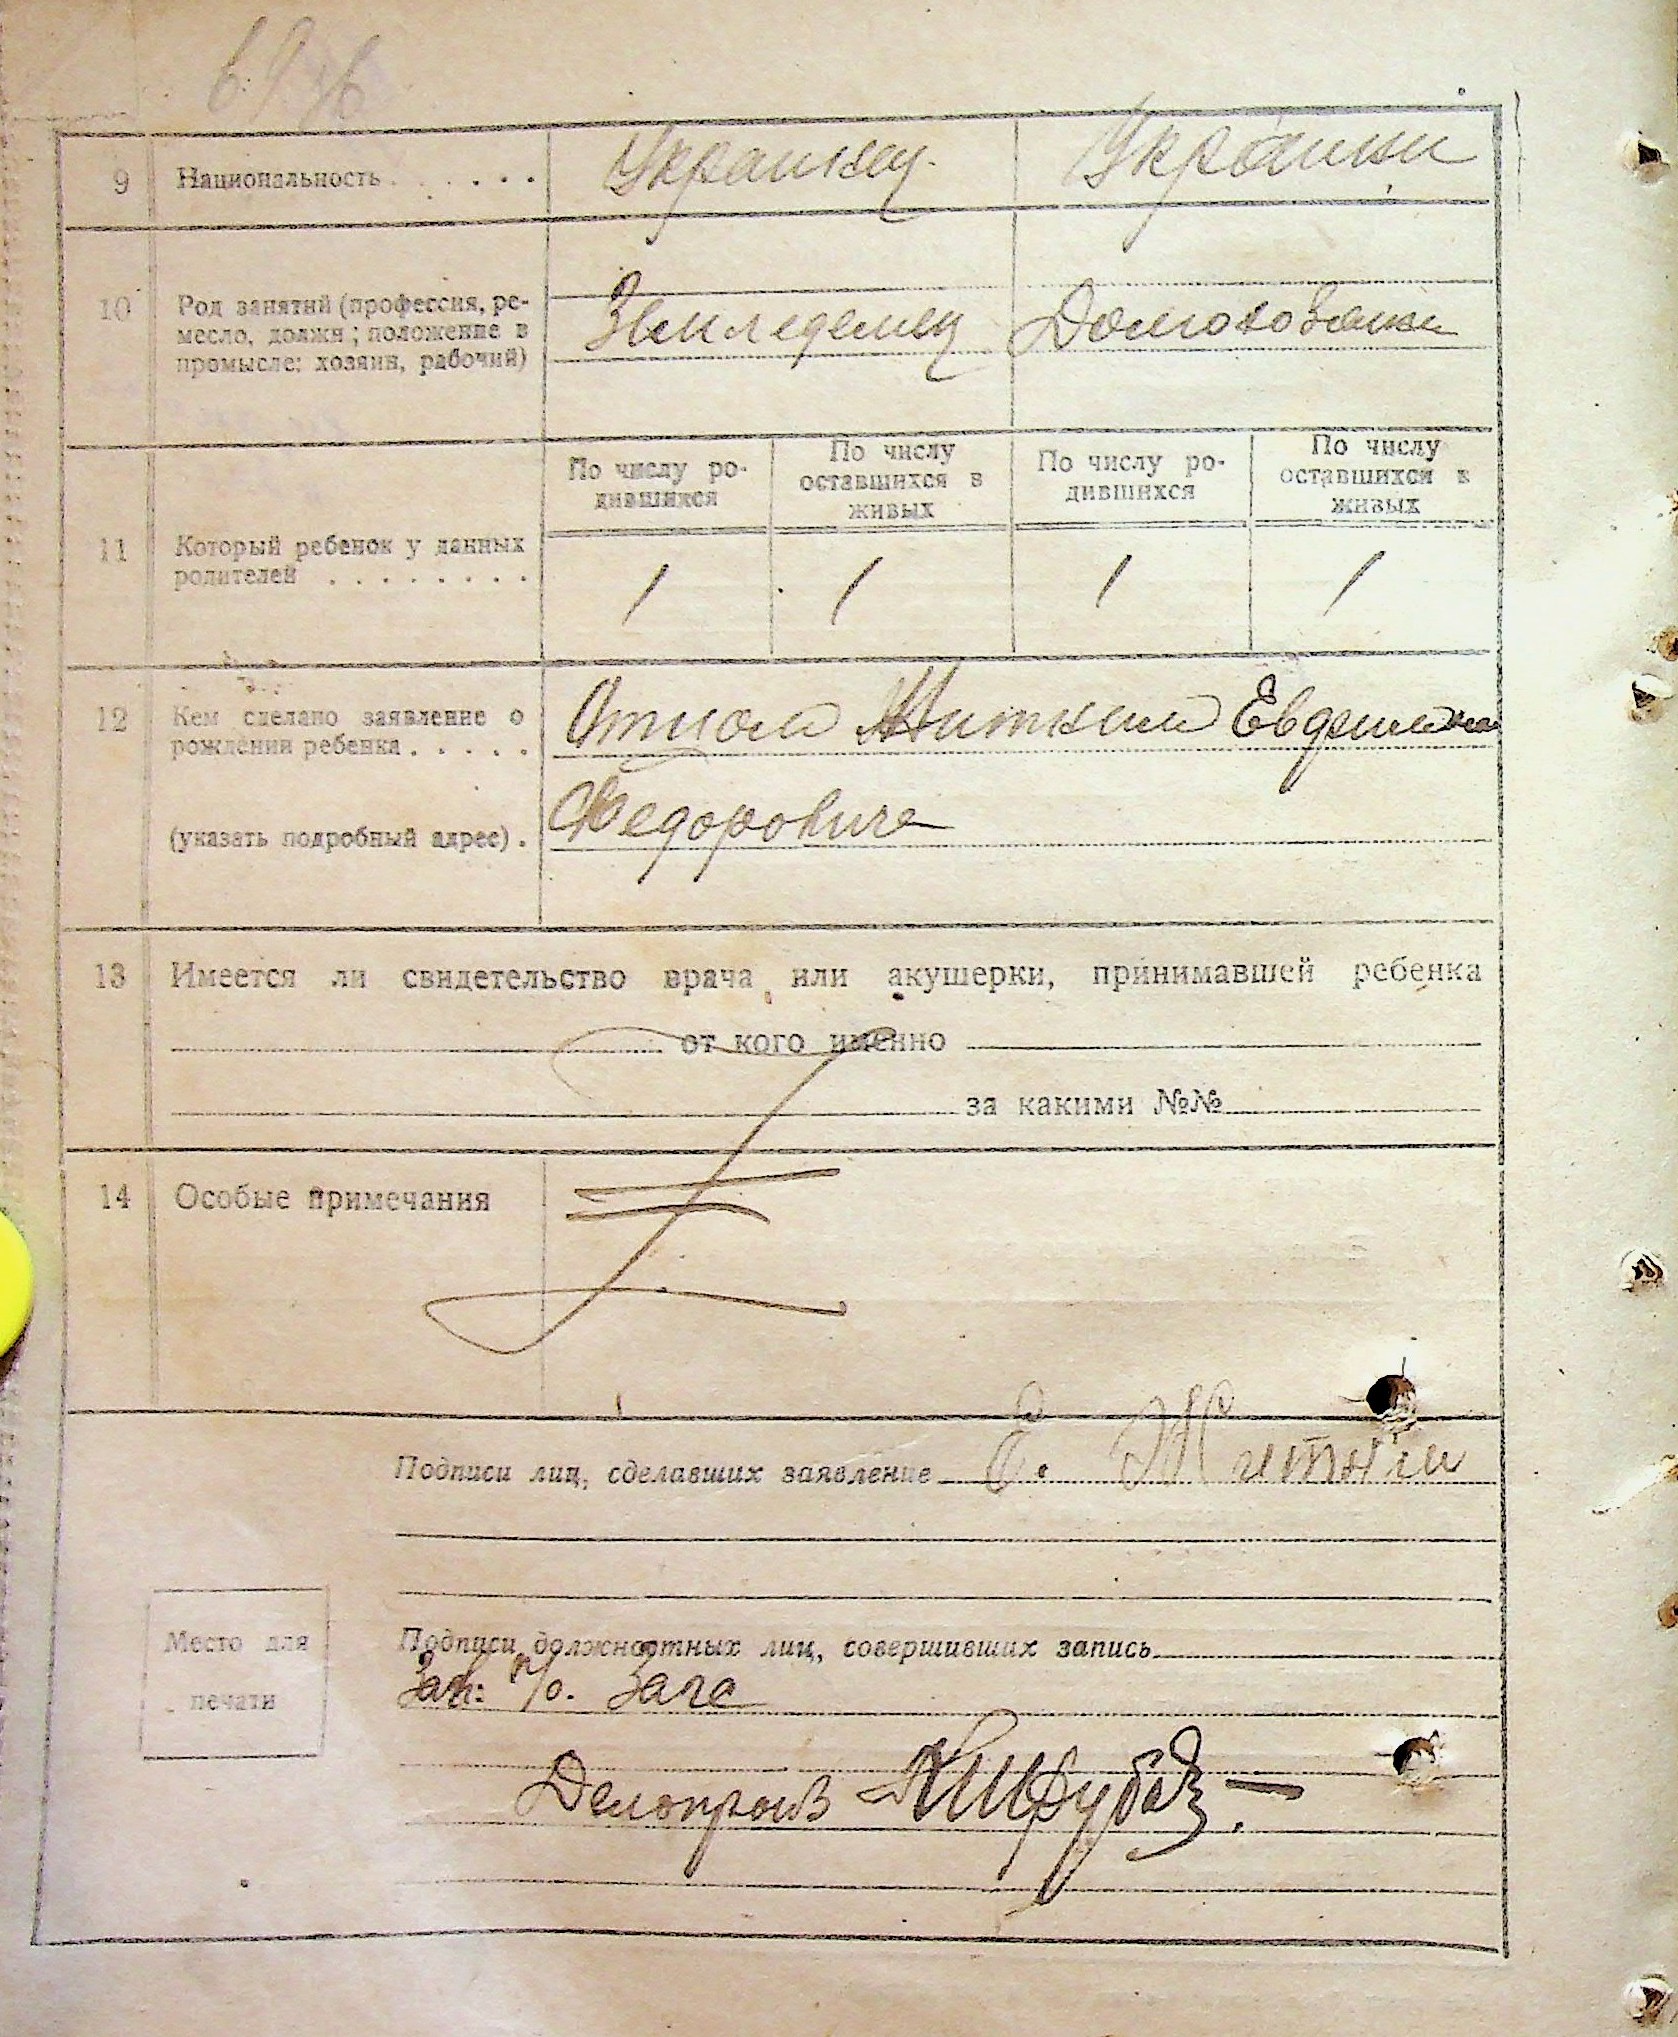 9 Национальность . . . . . . Украинец Украинки
10 Род занятий (профессия, ре-
месло, должн; положение в
промысле: хозяин, рабочий)
Земледелец Домохозяйки
По числу ро-
дившихся
По числу
оставшихся в
живых
По числу ро-
дившихся
По числу
оставшихся в
живых
11 Который ребенок у данных
родителей . . . . . . . .
1 1 1 1
12 Кем сделано заявление о
рождении ребенка . . . . .
Отцом Житним
(указать подробный адрес) .
Федоровича
13 Имеется ли свидетельство врача или акушерки, принимавшей ребенка
от кого именно
за какими №№
14 Особые примечания
Подписи лиц, сделавших заявление Е. Житний
Место для
печати
Подписи должностных лиц, совершивших запись
Зав: п/о. Загс
Делопроиз